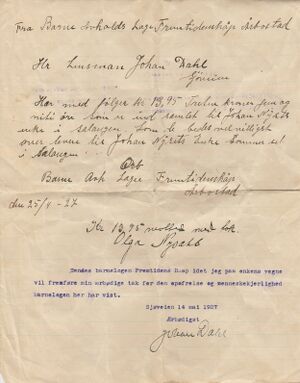 Fra Barne Avholds Lage Fremtidenshåp Årbostad
Hr Lensman Johan Dahl
Her med følger kr 13,95 Tretten kroner fem og
nitti øre som er ind samlet til Johan Nysets
enke i Salangen. Som de bedes velvilligst
over levere til Johan Nysets Enke Samme sted
i Salangen.
Barne Avh Lage Fremtidenshåp
Årbostad
den 25/4-27
Kr 13,95 mottat med tak.
Olga
Sendes barnelagen Fremtidens Haap idet jeg paa enkens vegne
vil fremføre min ærbødige tak for den opofrelse og menneskekjærlighed
barnelagen her har vist.
Sjøveien 14 mai 1927
Ærbødigst
Johan Dahl